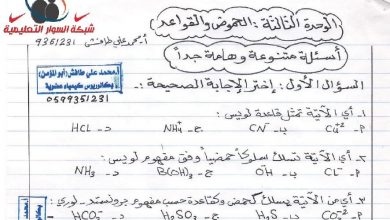 شبكة السوار التعليمية
أ. محمد علي طافش
٩٣٥١٢٣١
الوحدة الثالثة: الحموض والقواعد
أسئلة متنوعة وهامة جداً
أ. محمد علي طافش (أبو المؤمن)
بكالوريوس كيمياء عضوية
0599351231
السؤال الأول: إختر الإجابة الصحيحة:
١- أي الآتية تمثل قاعدة لويس:
P- Cu+2 ب- CN- ج- NH4+ د- HCl
٢- أي الآتية تسلك سلوكاً حمضياً وفق مفهوم لويس:
P- Cl- ب- OH- ج- B(OH)3 د- NH3
٣- أي من الآتية يسلك كحمض وكقاعدة حسب مفهوم برونستد - لوري:
P- CO3-2 ب- H2S ج- H2SO3 د- HCO3-